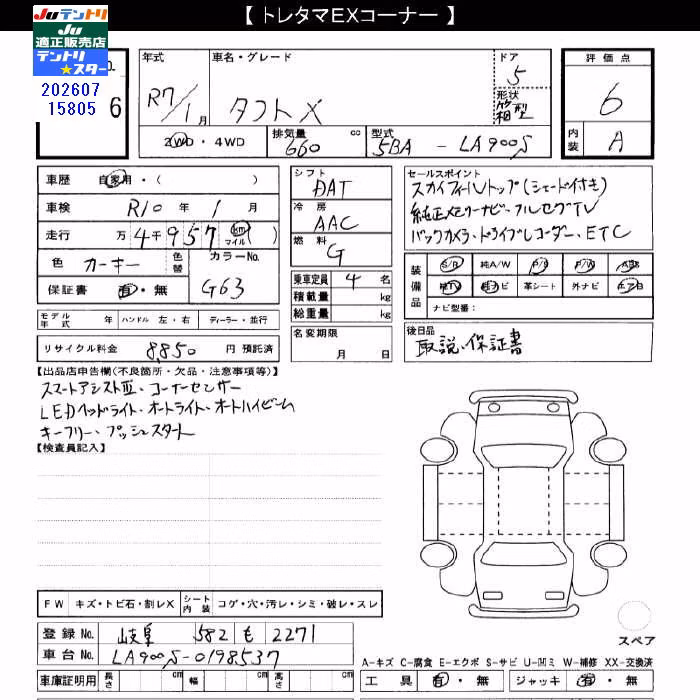 【 トレタマEXコーナー 】
Juテントリ
Ju
適正販売店
テントリ
★スター
202607
15805
No.
6
年式 R7/1月
車名・グレード タフト X
ドア 5
形状 箱型
2WD・4WD
排気量 660 cc
型式 5BA - LA900S
評価点 6
内装 A
車歴 自家用・( )
車検 R10 年 1 月
走行 万 4 千 957 km マイル ( )
色 カーキー 色替
カラーNo. G63
保証書 有・無
シフト DAT
冷房 AAC
燃料 G
乗車定員 4 名
積載量 kg
総重量 kg
セールスポイント
スカイフィールトップ(シェード付き)
純正メモリーナビ・フルセグTV
バックカメラ・ドライブレコーダー、ETC
装備品 S/R 純A/W P/S P/W ABS
純TV 純ナビ 革シート 外ナビ エアB
ナビ型番:
モデル年式 年 ハンドル 左・右 ディーラー・並行
名変期限 月 日
後日品
取説、保証書
リサイクル料金 8,850 円 預託済
【出品店申告欄(不良箇所・欠品・注意事項等)】
スマートアシストⅢ、コーナーセンサー
LEDヘッドライト、オートライト、オートハイビーム
キーフリー、プッシュスタート
【検査員記入】
FW キズ・トビ石・割レX シート内装 コゲ・穴・汚レ・シミ・破レ・スレ
登録 No. 岐阜 582 も 2271
車台 No. LA900S-0198537
車庫証明用 長さ cm 幅 cm 高さ cm
スペア
A-キズ C-腐食 E-エクボ S-サビ U-凹ミ W-補修 XX-交換済
工具 有・無 ジャッキ 有・無